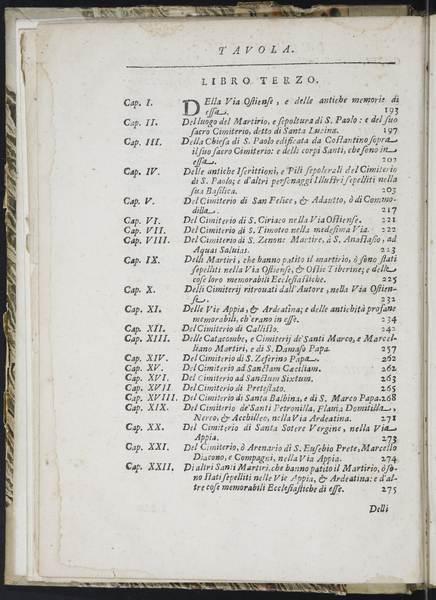 TAVOLA.
LIBRO TERZO.
Cap. I. DElla Via Ostiense, e delle antiche memorie di
essa. 193
Cap. II. Del luogo del Martirio, e sepoltura di S. Paolo: e del suo
sacro Cimiterio, detto di Santa Lucina. 197
Cap. III. Della Chiesa di S. Paolo edificata da Costantino sopra
il suo sacro Cimiterio: e delli corpi Santi, che sono in
essa. 202
Cap. IV. Delle antiche Iscrittioni, e Pili sepolcrali del Cimiterio
di S. Paolo; e d'altri personaggi Illustri sepelliti nella
sua Basilica. 203
Cap. V. Del Cimiterio di San Felice, & Adautto, ò di Commo-
dilla. 217
Cap. VI. Del Cimiterio di S. Ciriaco nella Via Ostiense. 221
Cap. VII. Del Cimiterio di S. Timoteo nella medesima Via. 222
Cap. VIII. Del Cimiterio di S. Zenone Martire, à S. Anastasio, ad
Aquas Saluias. 223
Cap. IX. Delli Martiri, che hanno patito il martirio, ò sono stati
sepelliti nella Via Ostiense, & Ostie Tiberine; e delle
cose loro memorabili Ecclesiastiche. 225
Cap. X. Delli Cimiterij ritrouati dall'Autore, nella Via Ostien-
se. 232
Cap. XI. Delle Vie Appia, & Ardeatina; e delle antichità profane
memorabili, ch'erano in esse. 234
Cap. XII. Del Cimiterio di Callisto. 242
Cap. XIII. Delle Catacombe, e Cimiterij de' Santi Marco, e Marcel-
liano Martiri, e di S. Damaso Papa. 257
Cap. XIV. Del Cimiterio di S. Zeferino Papa. 262
Cap. XV. Del Cimiterio ad Sanctam Cæciliam. 262
Cap. XVI. Del Cimiterio ad Sanctum Sixtum. 263
Cap. XVII. Del Cimiterio di Pretestato. 265
Cap. XVIII. Del Cimiterio di Santa Balbina, e di S. Marco Papa. 268
Cap. XIX. Del Cimiterio de' Santi Petronilla, Flauia Domitilla,
Nereo, & Acchilleo, nella Via Ardeatina. 271
Cap. XX. Del Cimiterio di Santa Sotere Vergine, nella Via
Appia. 273
Cap. XXI. Del Cimiterio, ò Arenario di S. Eusebio Prete, Marcello
Diacono, e Compagni, nella Via Appia. 274
Cap. XXII. Di altri Santi Martiri, che hanno patito il Martirio, ò so-
no stati sepelliti nelle Vie Appia, & Ardeatina: e d'al-
tre cose memorabili Ecclesiastiche di esse. 275
Delli